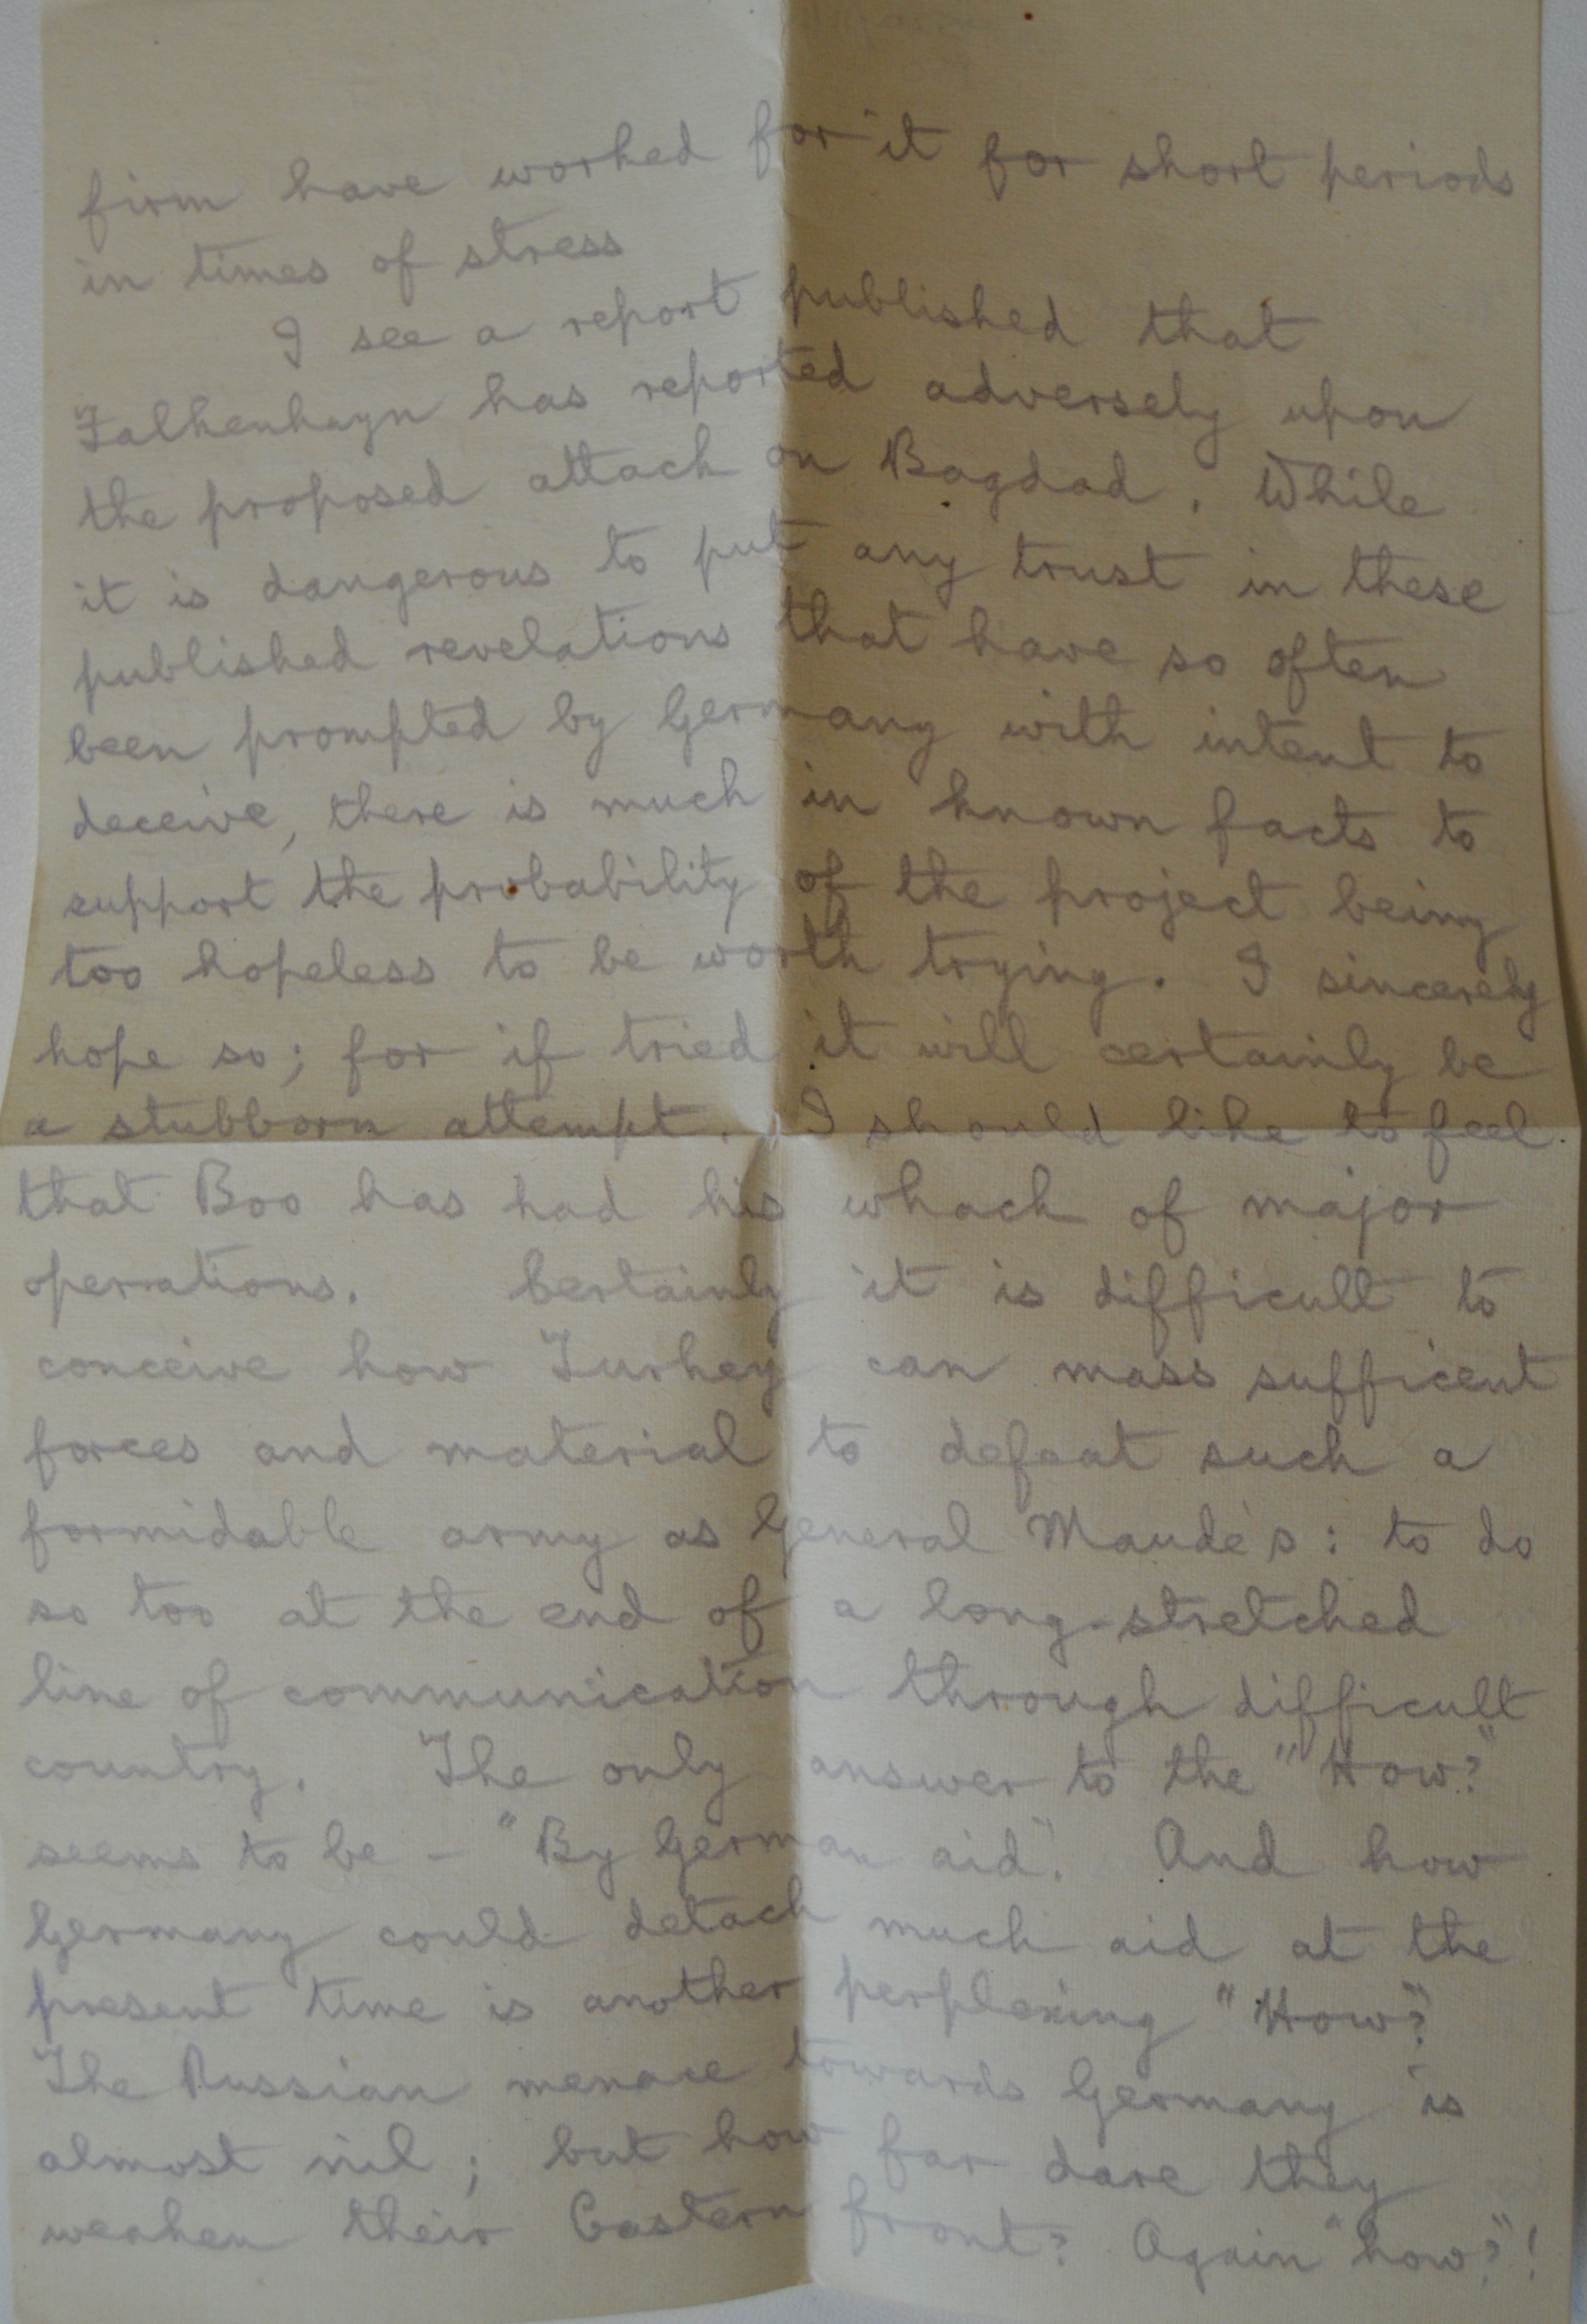 firm have worked for it for short periods
in times of stress
I see a report published that
Falkenhayn has reported adversely upon
the proposed attack on Bagdad. While
it is dangerous to put any trust in these
published revelations that have so often
been prompted by Germany with intent to
deceive, there is much in known facts to
support the probability of the project being
too hopeless to be worth trying. I sincerely
hope so; for if tried it will certainly be
a stubborn attempt. I should like to feel
that Boo has had his whack of major
operations. Certainly it is difficult to
conceive how Turkey can mass sufficent
forces and material to defeat such a
formidable army as General Maude's: to do
so too at the end of a long-stretched
line of communication through difficult
country. The only answer to the "How?"
seems to be – "By German aid". And how
Germany could detach much aid at the
present time is another perplexing "How"?
The Russian menace towards Germany is
almost nil; but how far dare they
weaken their Eastern front? Again "how?"!